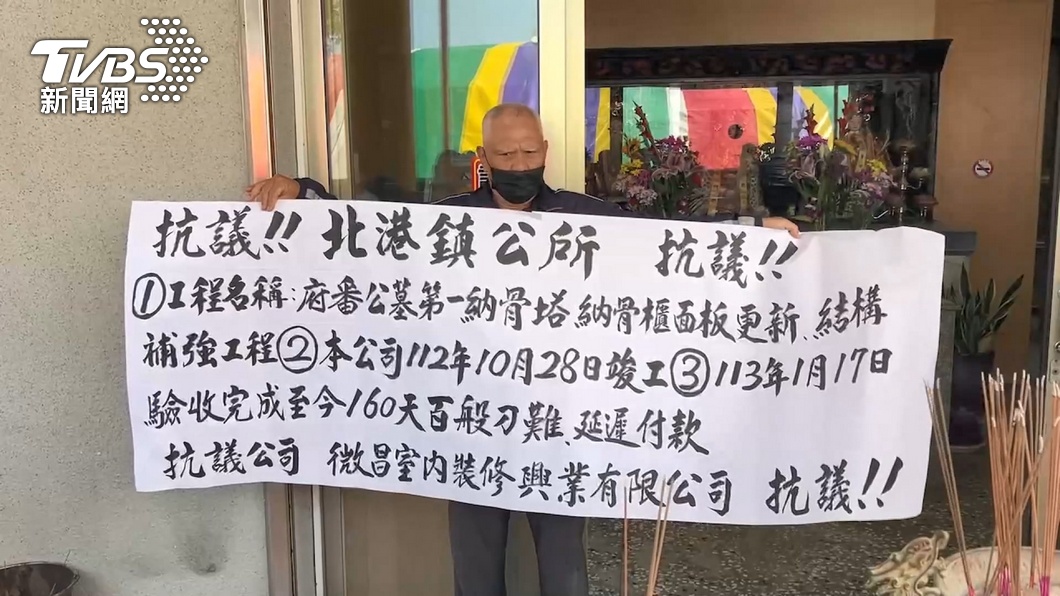 TVBS
新聞網
抗議!! 北港鎮公所 抗議!!
①工程名稱:府番公墓第一納骨塔納骨櫃面板更新、結構
補強工程②本公司112年10月28日竣工③113年1月17日
驗收完成至今160天百般刁難、延遲付款
抗議公司 微昌室內裝修興業有限公司 抗議!!